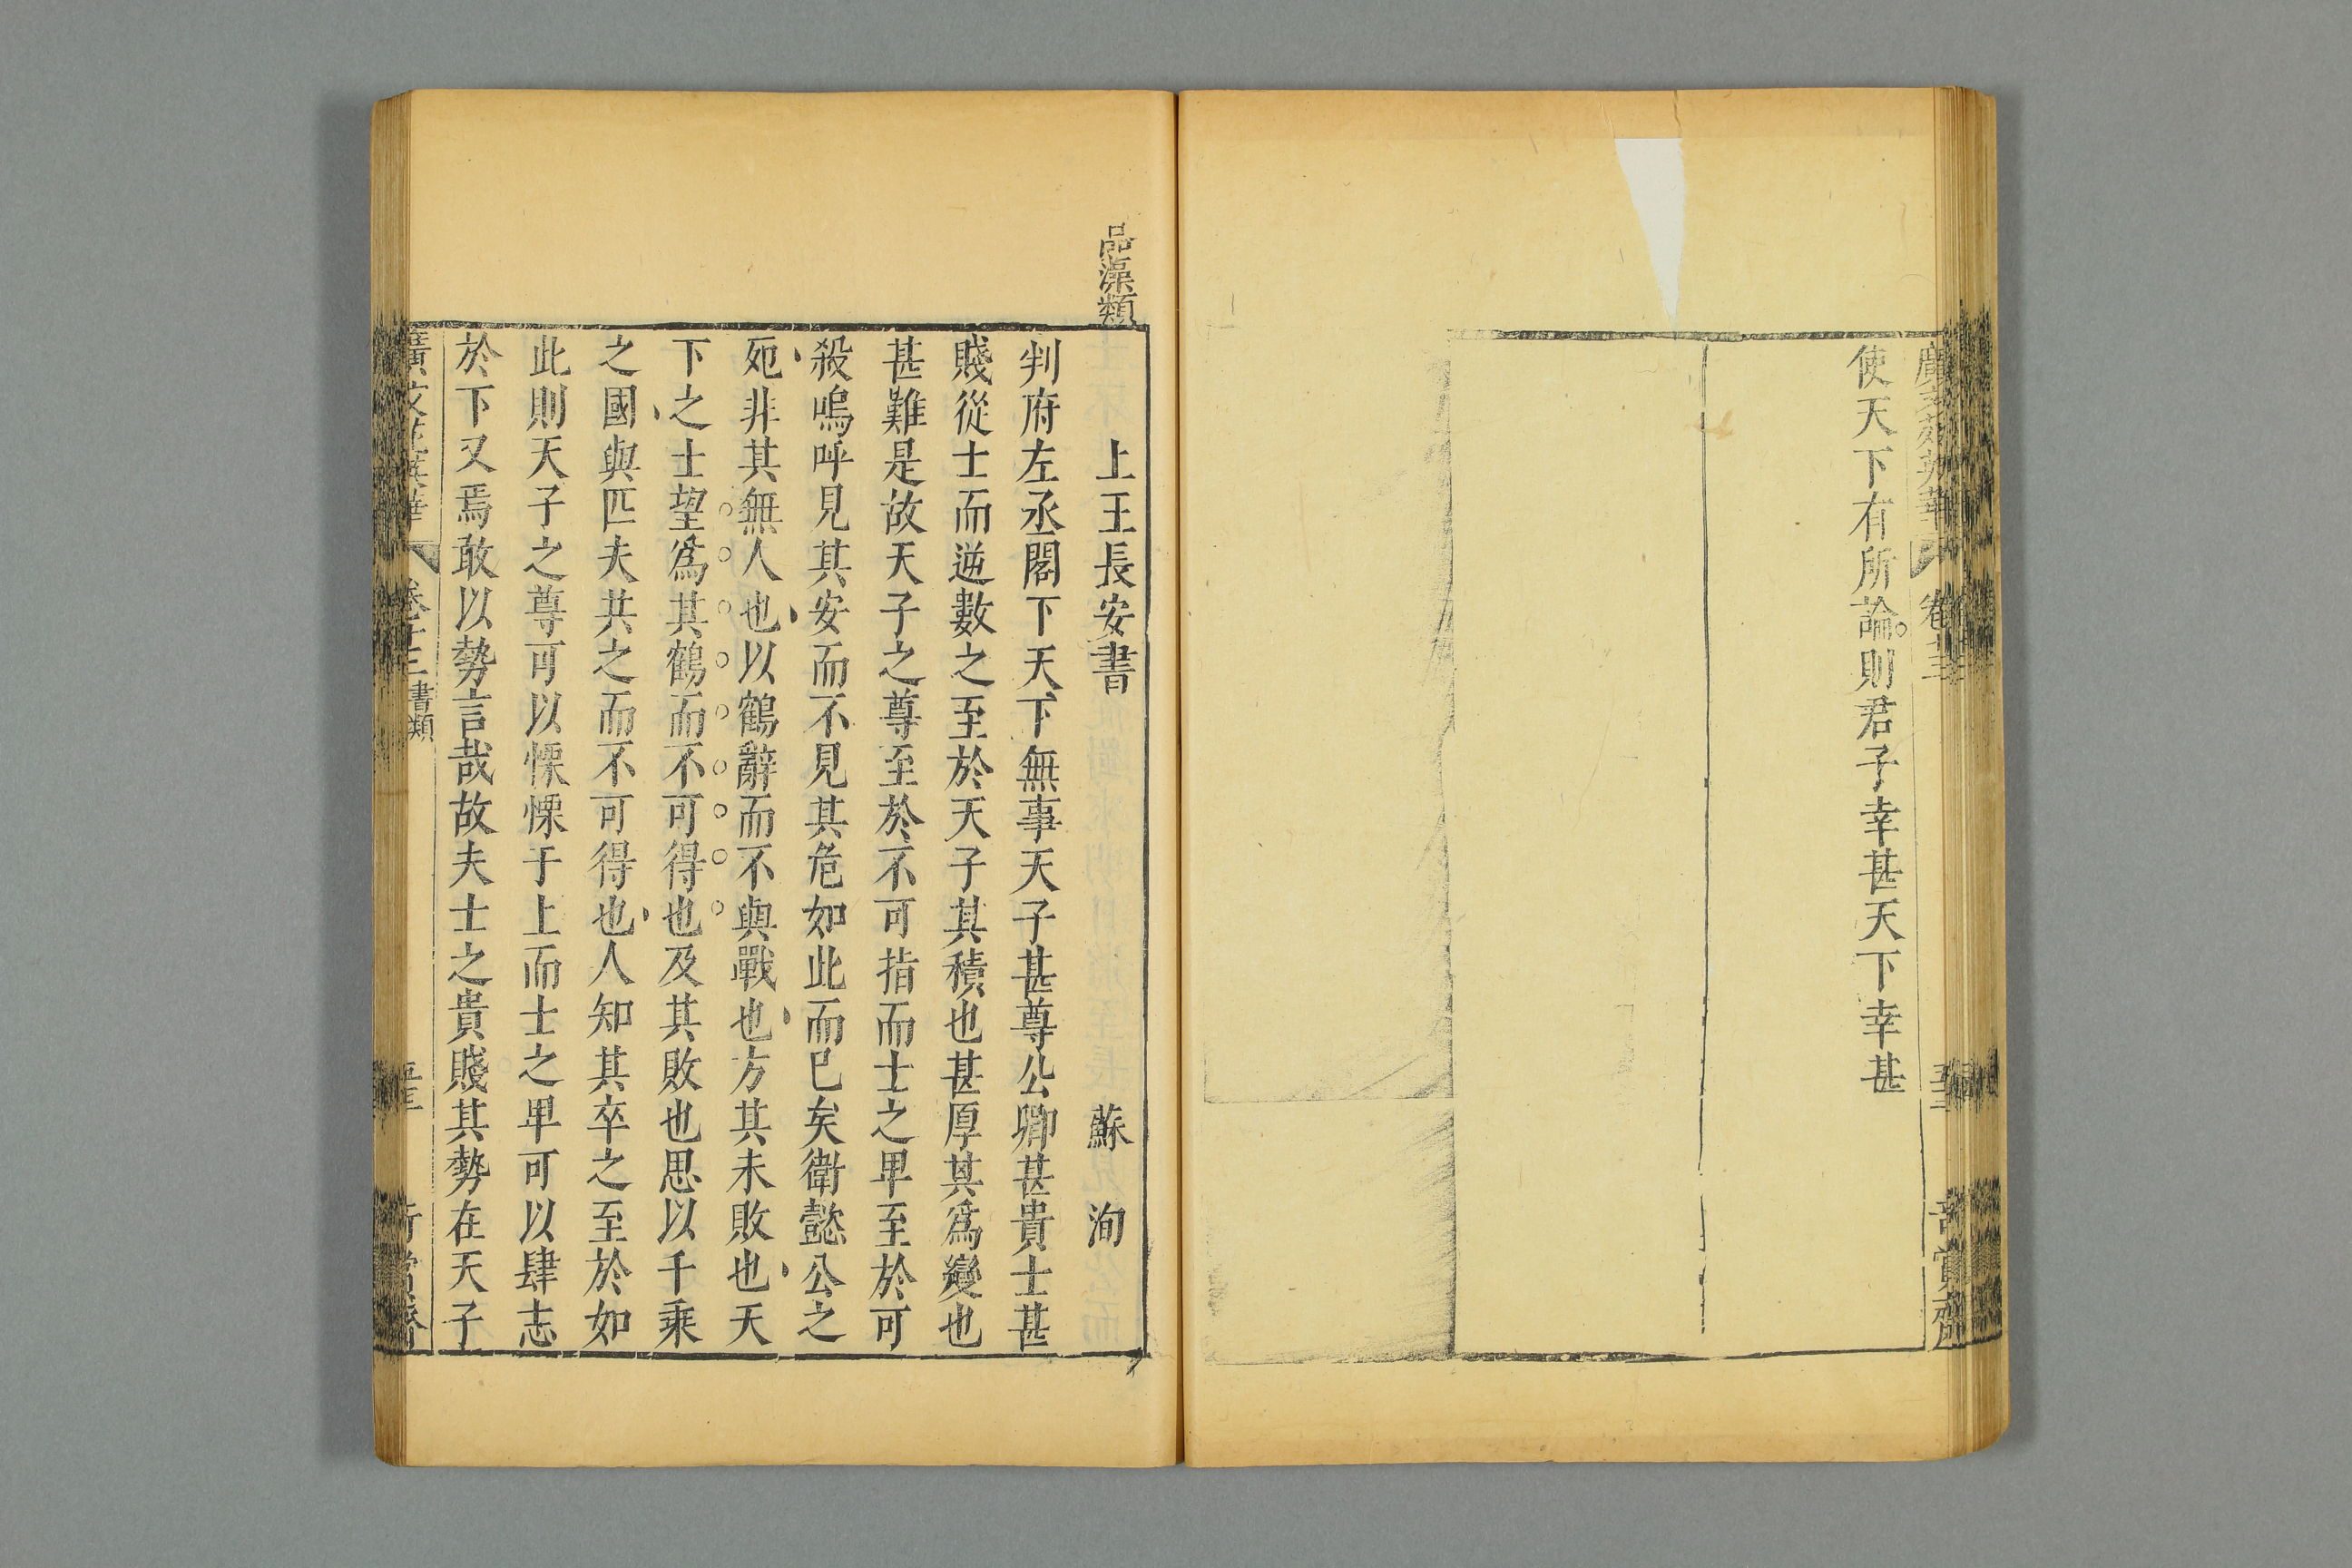 使天下有所論則君子幸甚天下幸甚
品藻類
上王長安書　蘇　洵
判府左丞閣下天下無事天子甚尊公卿甚貴士甚
賤從士而逆數之至於天子其積也甚厚其為變也
甚難是故天子之尊至於不可指而士之卑至於可
殺嗚呼見其安而不見其危如此而已矣衛懿公之
死非其無人也以鶴辭而不與戰也方其未敗也天
下之士望為其鶴而不可得也及其敗也思以千乘
之國與匹夫共之而不可得也人知其卒之至於如
此則天子之尊可以慄慄于上而士之卑可以肆志
於下又焉敢以勢言哉故夫士之貴賤其勢在天子
書類